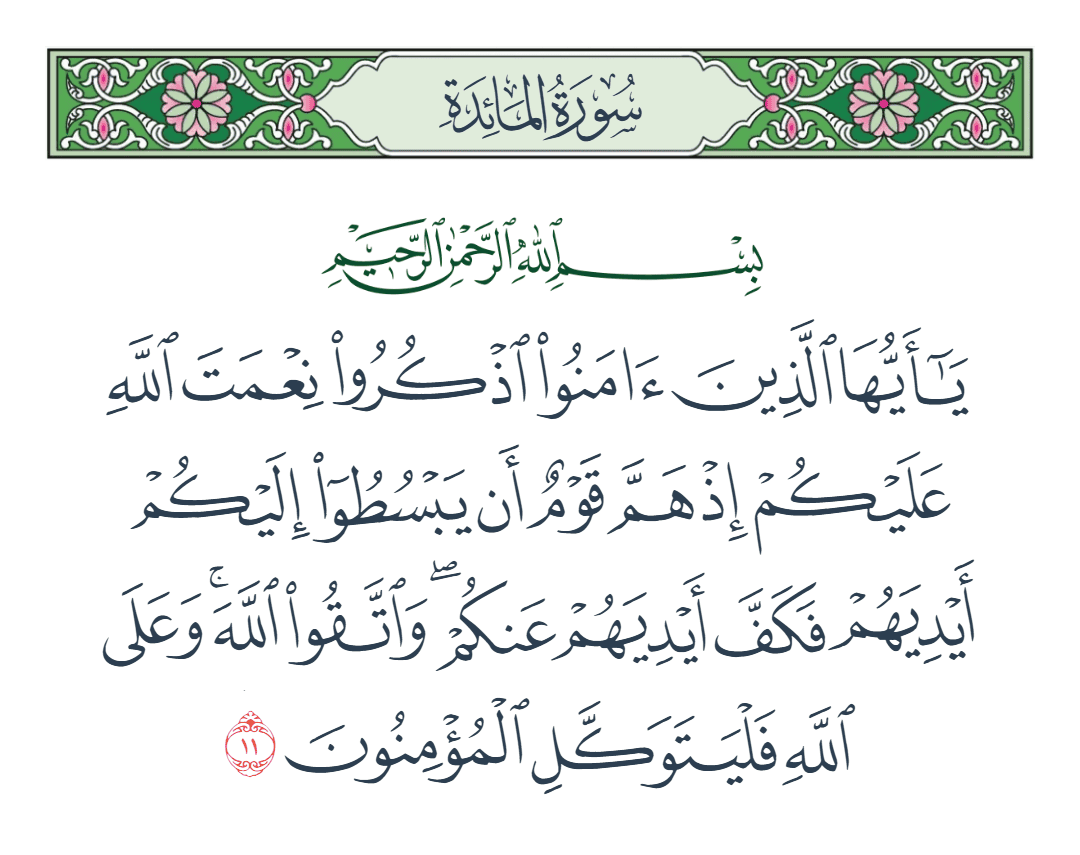 سُورَةُ المَائِدَةِ
بِسْمِ ٱللَّهِ ٱلرَّحْمَٰنِ ٱلرَّحِيمِ
يَـٰٓأَيُّهَا ٱلَّذِينَ ءَامَنُوا۟ ٱذْكُرُوا۟ نِعْمَتَ ٱللَّهِ
عَلَيْكُمْ إِذْ هَمَّ قَوْمٌ أَن يَبْسُطُوٓا۟ إِلَيْكُمْ
أَيْدِيَهُمْ فَكَفَّ أَيْدِيَهُمْ عَنكُمْ ۖ وَٱتَّقُوا۟ ٱللَّهَ ۚ وَعَلَى
ٱللَّهِ فَلْيَتَوَكَّلِ ٱلْمُؤْمِنُونَ ١١